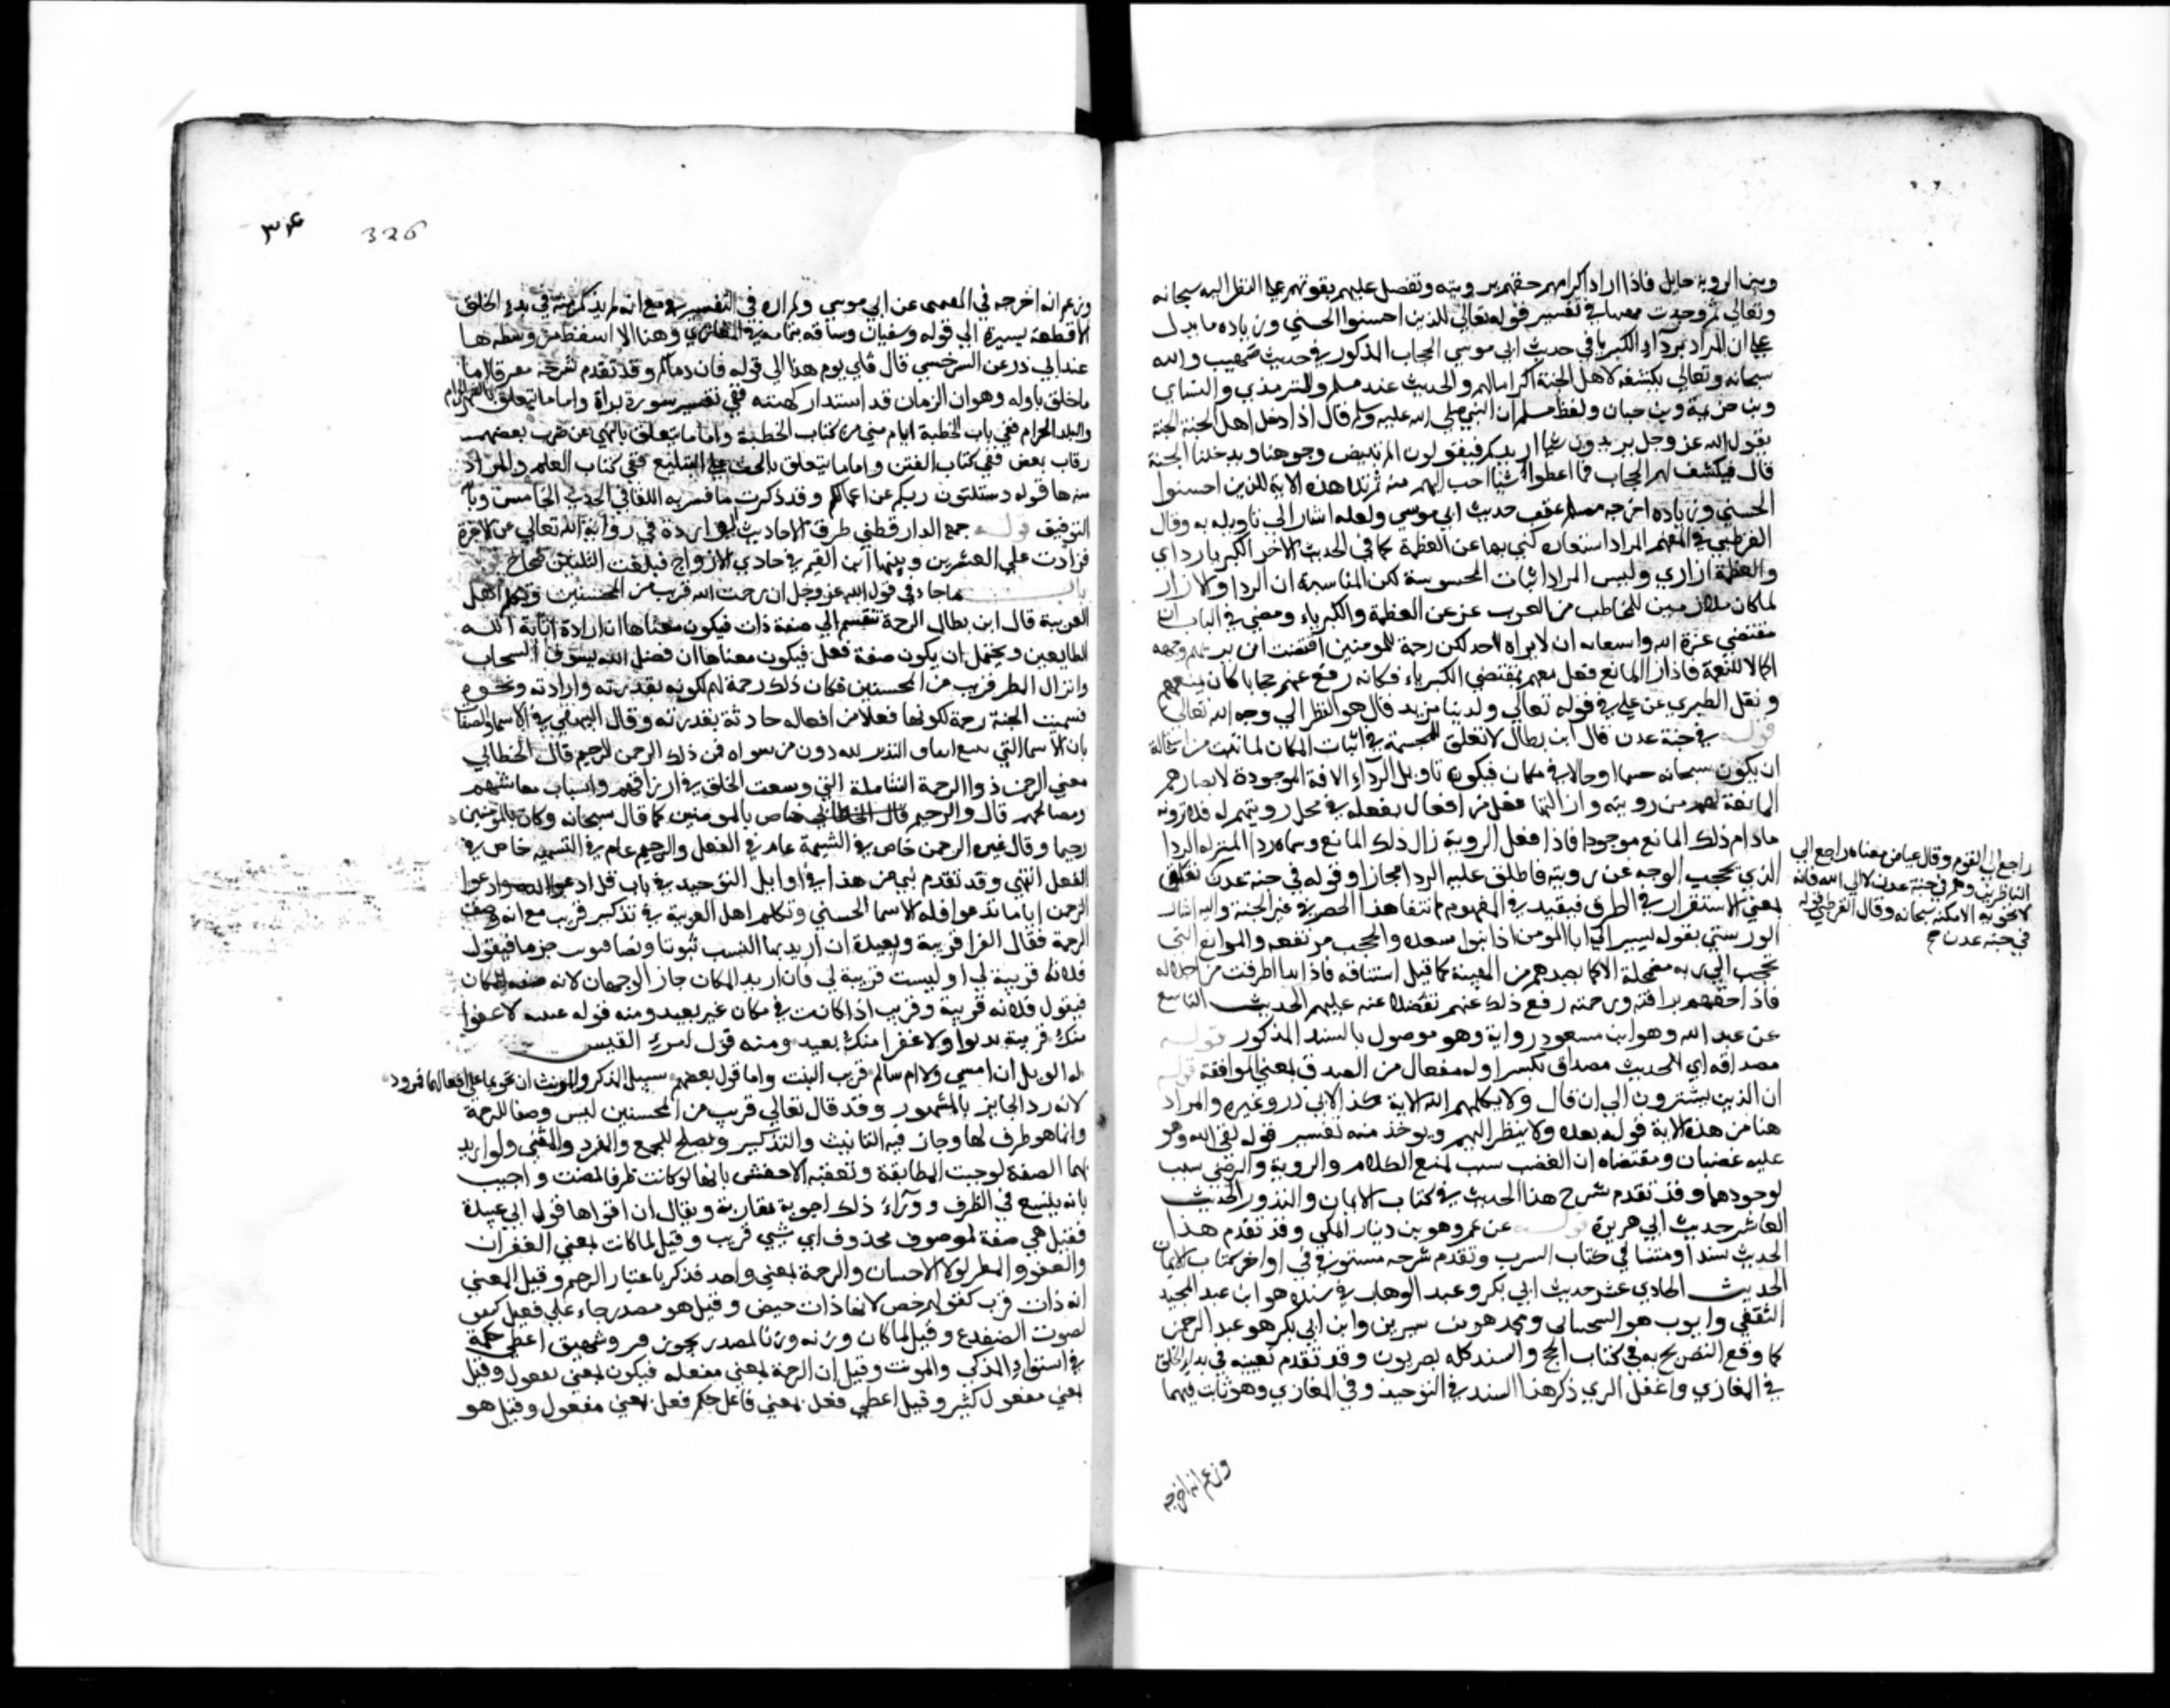 وبين الروية حايل فاذا اراد اكرامهم حفهم برويته وتفضل عليهم بقوتهم على النظر اليه سبحانه
وتعالى ثم وجدت في تفسير قوله تعالى للذين احسنوا الحسني وزياده ما يدل
على ان المراد برداء الكبريا في حديث ابي موسي الحجاب المذكور في حديث صهيب والله
سبحانه وتعالى يكشفه لاهل الجنة اكراما لهم والحديث عند مسلم والترمذي والنساي
وبن خزيمة وبن حبان ولفظ مسلم ان النبي صلى الله عليه وسلم قال اذا دخل اهل الجنة الجنة
يقول الله عز وجل تريدون شيا ازيدكم فيقولون الم تبيض وجوهنا وتدخلنا الجنة
قال فيكشف لهم الحجاب فما اعطوا شيئا احب اليهم منه ثم تلا هذه الاية للذين احسنوا
الحسني وزياده اخرجه مسلم عقب حديث ابي موسي ولعله اشار الي تاويله به وقال
القرطبي في المفهم المراد استعارة كني بها عن العظمة كما في الحديث الاخر الكبريا رداي
والعظمة ازاري وليس المراد الثياب المحسوسة لكن المناسبة ان الردا والازار
لما كان ملازمين للمخاطب من العرب عبر عن العظمة والكبرياء ومعني في الباب ان
مقتضي عزة الله واستغنائه ان لا يراه احد لكن رحمة للمومنين اقتضت ان يريهم وجهه
اكمالا للنعمة فاذا زال المانع فعل معهم بمقتضي الكبرياء فكانه رفع عنهم حجابا كان يمنعهم
ونقل الطبري عن علي في قوله تعالي ولدينا مزيد قال هو النظر الي وجه الله تعالي
قوله في جنة عدن قال ابن بطال لا تعلق للمجسمة في اثبات المكان لما ثبت من استحالة
ان يكون سبحانه جسما او حالا في مكان فيكون تاويل الرداء الافة الموجودة لابصارهم
المانعة لهم من رويته وازالتها فعل من افعاله يفعله في محل رويتهم له فلا يرونه
مادام ذلك المانع موجودا فاذا فعل الروية زال ذلك المانع وسماه ردا لتنزله الردا
الذي يحجب الوجه عن رويته فاطلق عليه الردا مجازا وقوله في جنة عدن متعلق
بمعني الاستقرار في الظرف فيقيد في المفهوم بانتفا هذا الحصر في غير الجنة واليه اشار
التوربشتي بقوله يشير الي ان المومن اذا تبوا مقعده والحجب مرتفعه والموانع التي
تحجب الي ربه مضمحلة الا ما يصدهم من الهيبة كما قيل اشتاقه فاذا بدا اطرقت من اجلاله
فاذا حفهم برافته ورحمته رفع ذلك عنهم تفضلا منه عليهم الحديث التاسع
عن عبد الله وهو ابن مسعود رواية وهو موصول بالسند المذكور قوله
مصداقه اي الحديث مصداق بكسر اوله مفعال من الصدق بمعني الموافقة قوله
ان الذين يشترون الي ان قال ولا يكلمهم الله الاية كذا لابي ذر وغيره والمراد
هنا من هذه الاية قوله بعده ولا ينظر اليهم ويوخذ منه تفسير قوله لقي الله وهو
عليه غضبان ومقتضاه ان الغضب سبب لمنع الكلام والروية والرضي سبب
لوجودهما وقد تقدم شرح هذا الحديث في كتاب الايمان والنذور الحديث
العاشر حديث ابي هريرة قوله عن عمرو هو بن دينار المكي وقد تقدم هذا
الحديث سندا ومتنا في كتاب الشرب وتقدم شرحه مستوفي في اواخر كتاب الايمان
الحديث الحادي عشر حديث ابي بكرة وعبد الوهاب في سنده هو ابن عبد المجيد
الثقفي وايوب هو السختياني ومحمد هو بن سيرين وابن ابي بكرة هو عبد الرحمن
كما وقع التصريح به في كتاب الحج والسند كله بصريون وقد تقدم بعينه في بدء الخلق
في المغازي واغفل المزي ذكر هذا السند في التوحيد وفي المغازي وهو ثابت فيهما
وزعم انه اخرجه
راجع الي القوم وقال عياض معناه راجع الي
الناظرين وهم في جنة عدن لا الي الله فانه
لا تحويه الامكنة سبحانه وقال القرطبي قوله
في جنة عدن
326
وزعم انه اخرجه في التفسير عن ابي موسي ولم اره في التفسير مع انه لم يذكر منه في بدء الخلق
الا قطعة يسيرة الي قوله وشعبان وساقه بتمامه في المغازي وهنا الا انه سقط من وسطه هنا
عند ابي ذر عن السرخسي قال فاي يوم هذا الي قوله فان دماكم وقد تقدم شرحه مفرقا اما
ما يتعلق باوله وهو ان الزمان قد استدار كهيئته ففي تفسير سورة براة واما ما يتعلق بالشهر الحرام
والبلد الحرام ففي باب الخطبة ايام مني من كتاب الحج واما ما يتعلق بالنهي عن ضرب بعضهم
رقاب بعض ففي كتاب الفتن واما ما يتعلق بالحث على التبليغ ففي كتاب العلم والمراد
منه هنا قوله وستلقون ربكم فيسالكم عن اعمالكم وقد ذكرت ما فسر به اللقا في الحديث الخامس وبالله
التوفيق قوله جمع الدارقطني طرق الاحاديث الواردة في روية الله تعالي في الاخرة
فزادت علي العشرين وتتبعها ابن القيم في حادي الارواح فبلغت الثلاثين
باب ما جاء في قول الله عز وجل ان رحمت الله قريب من المحسنين وتكلم اهل
العربية قال ابن بطال الرحمة تنقسم الي صفة ذات فيكون معناها ارادة اثابة الله
الطايعين ويحتمل ان يكون صفة فعل فيكون معناها ان فضل الله بسوق السحاب
وانزال المطر قريب من المحسنين فكان ذلك رحمة لهم لكونه بقدرته وارادته ونحوه
تسميت الجنة رحمة لكونها فعلا من افعاله حادثة بقدرته وقال البيهقي في الاسما والصفات
باب الاسما التي تتبع اثبات التدبير لله دون من سواه فمن ذلك الرحمن الرحيم قال الخطابي
معني الرحمن ذو الرحمة الشاملة التي وسعت الخلق في ارزاقهم واسباب معايشهم
ومصالحهم قال والرحيم خاص بالمومنين كما قال سبحانه وكان بالمومنين
رحيما وقال غيره الرحمن خاص في التسمية عام في الفعل والرحيم عام في التسمية خاص في
الفعل انتهي وقد تقدم شي من هذا في اوايل التوحيد في باب قل ادعوا الله او ادعوا
الرحمن اياما تدعوا فله الاسما الحسني وتكلم اهل العربية في تذكير قريب مع انه وصف
الرحمة فقال الفرا قريبة وبعيدة ان اريد بها النسب ثبوتا ونفيا فتونث جزما فيقول
فلانة قريبة لي او ليست قريبة لي فان اريد المكان جاز الوجهان لانه صفة المكان
فيقول فلانة قريبة وقريب اذا كانت في مكان غير بعيد ومنه قوله عشية لا عفرا
منك قريبة تدنوا ولا عفرا منك بعيد ومنه قول امرئ القيس
له الويل ان امسي ولا ام سالم قريب البيت واما قول بعضهم سبيل المذكر والمونث ان يجريا علي افعالهما فمردود
لانه رد الجايز بالمشهور وقد قال تعالي قريب من المحسنين ليس وصفا للرحمة
وانما هو ظرف لها وجاز فيه التانيث والتذكير ويصلح للجمع والفرد والمثني ولو اريد
بها الصفة لوجبت المطابقة وتعقبه الاخفش بانها لو كانت ظرفا لنصبت واجيب
بانه يتسع في الظرف ووراء ذلك اجوبة متقاربة ويقال ان اقواها قول ابي عبيدة
فقيل هي صفة لموصوف محذوف اي شيي قريب وقيل لما كانت بمعني الغفران
والعفو والمطر والاحسان والرحمة بمعني واحد فذكر باعتبار الرحم وقيل المعني
انه ذات قرب كقولهم حايض لانها ذات حيض وقيل هو مصدر جاء علي فعيل
لصوت الضفدع وقيل لما كان وزنه وزن المصدر نحو زفير وشهيق اعطي حكمه
في استواء المذكر والمونث وقيل ان الرحمة بمعني مفعله فيكون بمعني مفعول وفعيل
بمعني مفعول كثير وقيل اعطي فعيل بمعني فاعل حكم فعيل بمعني مفعول وقيل هو